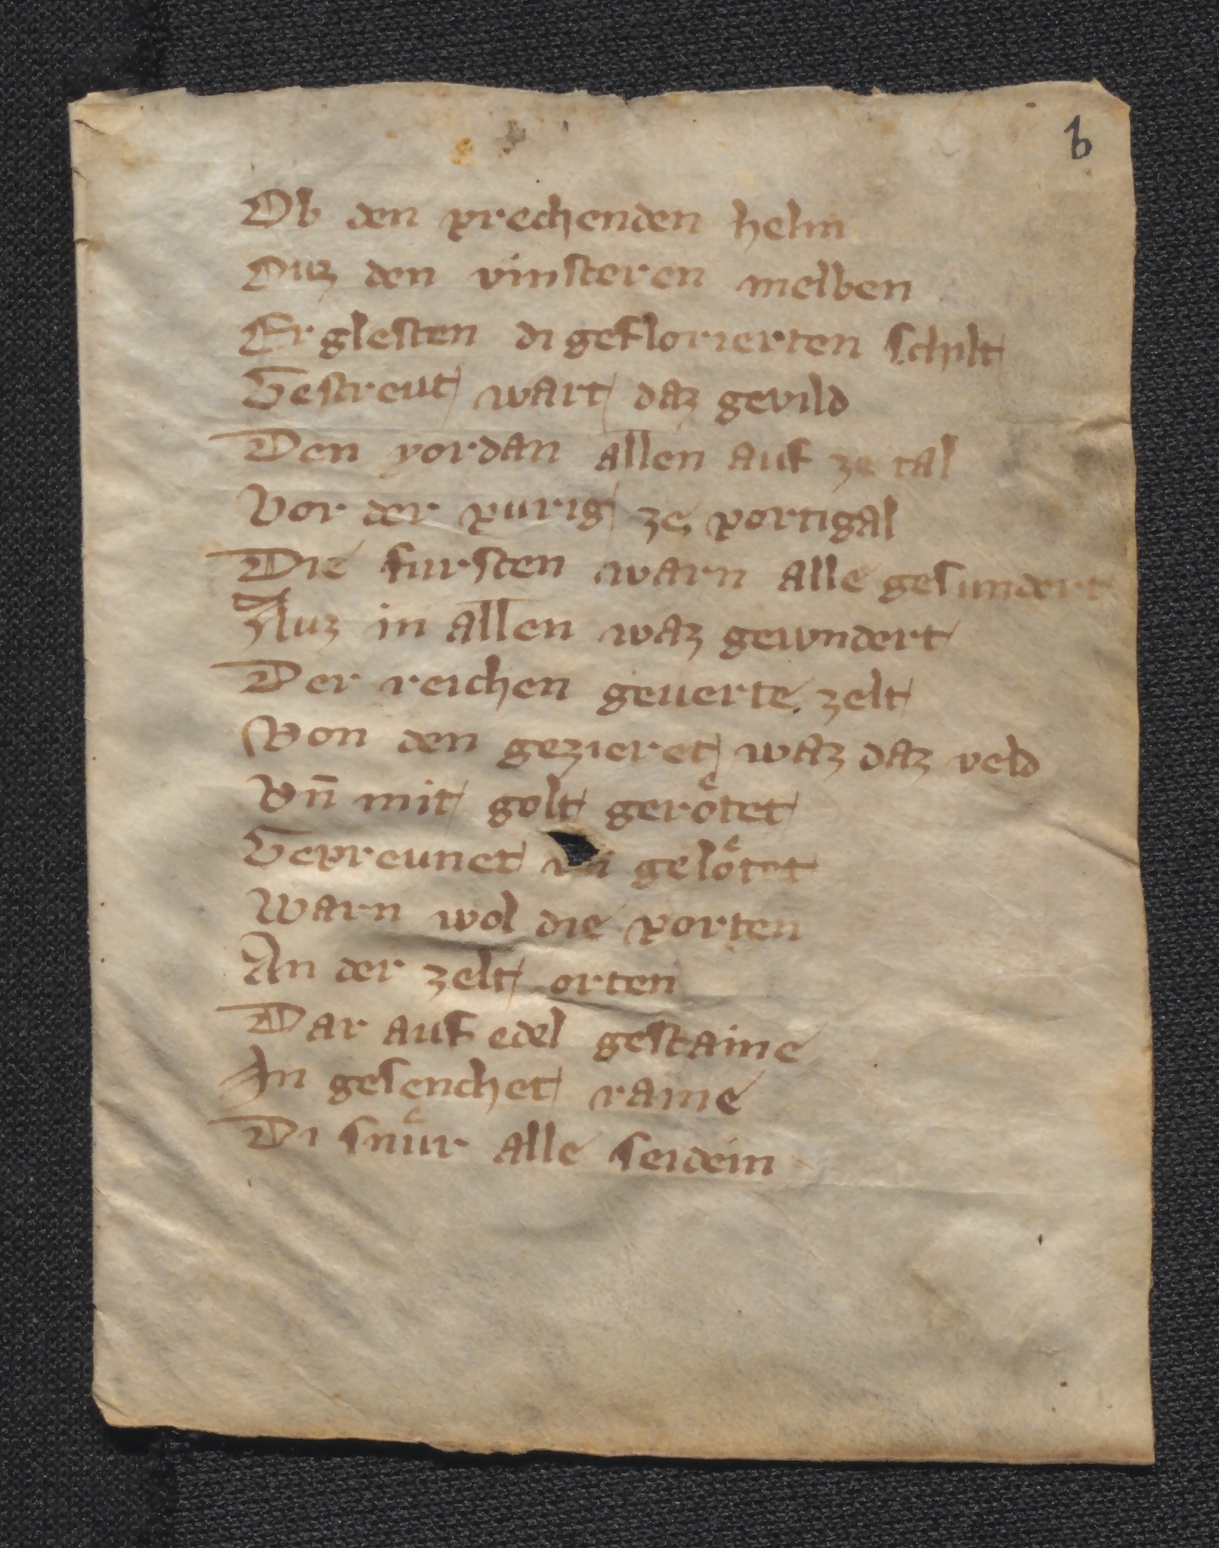 b
Ob den prechenden helm
Duz den vinsteren melben
Er glesten di geflorierten schilt
Gestreut wart daz gevild
Den yordan allen auf ze tal
Vor der purig ze portigal
Die fursten warn alle gesundert
Auz in allen waz gewndert
Der reichen geuerte zelt
Von den gezieret waz daz veld
Vn̄ mit golt geroͤtet
Gepreunet geloͤtet
Warn wol die porten
An der zelt orten
Dar auf edel gestaine
In gesenchet raine
Di snuͤr alle seidein